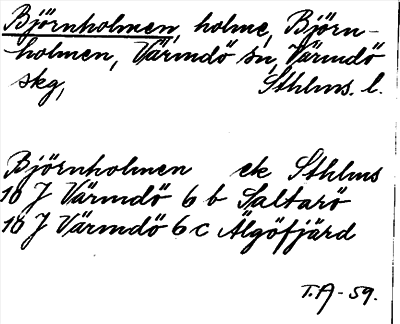 Björnholmen, holme, Björn-
holmen, Värmdö sn, Värmdö
skg, Sthlms. l.
Björnholmen ek Sthlms
10 J Värmdö 6 b Saltarö
10 J Värmdö 6 c Älgöfjärd
T.A-59.